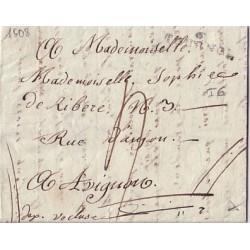 1808
A Mademoiselle
Mademoiselle Sophie
de Ribere, N.° 3
Rue
A Avignon.
Dep. Vocluse